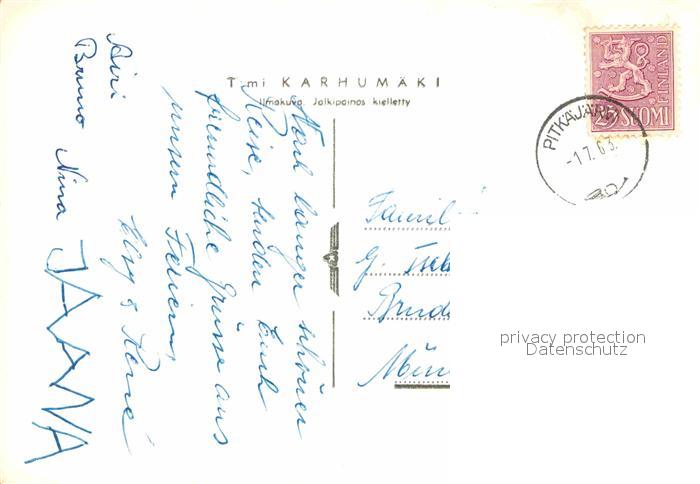 Toimi KARHUMÄKI
Ilmakuva. Jälkipainos kielletty
Nach langer schöner
Reise, senden Euch
freundliche Grüsse aus
unsern Ferien,
Elsy & René
Airi
Bruno Nina JAANA
25 SUOMI
FINLAND
PITKÄJÄRVI
-1.7.63.
Famil
G.
Brud
Mün
privacy protection
Datenschutz